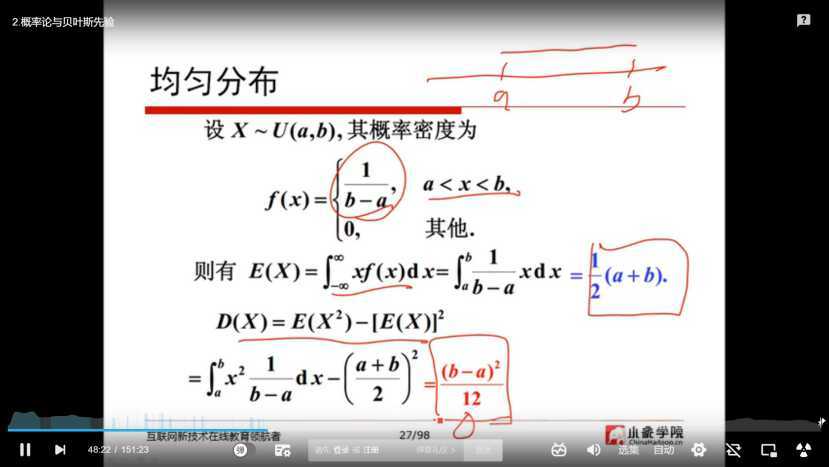 2.概率论与贝叶斯先验
?
均匀分布
a b
设 X ~ U(a,b), 其概率密度为
f(x) = { 1/(b−a), a < x < b,
0, 其他.
则有 E(X) = ∫_{−∞}^{∞} xf(x)dx = ∫_a^b 1/(b−a) xdx = 1/2 (a+b).
D(X) = E(X²) − [E(X)]²
= ∫_a^b x² 1/(b−a) dx − ((a+b)/2)² = (b−a)²/12
互联网新技术在线教育领航者
27/98
小象学院
ChinaHadoop.cn
48:22 / 151:23
弹
请先 登录 或 注册
弹幕礼仪 >
选集
自动